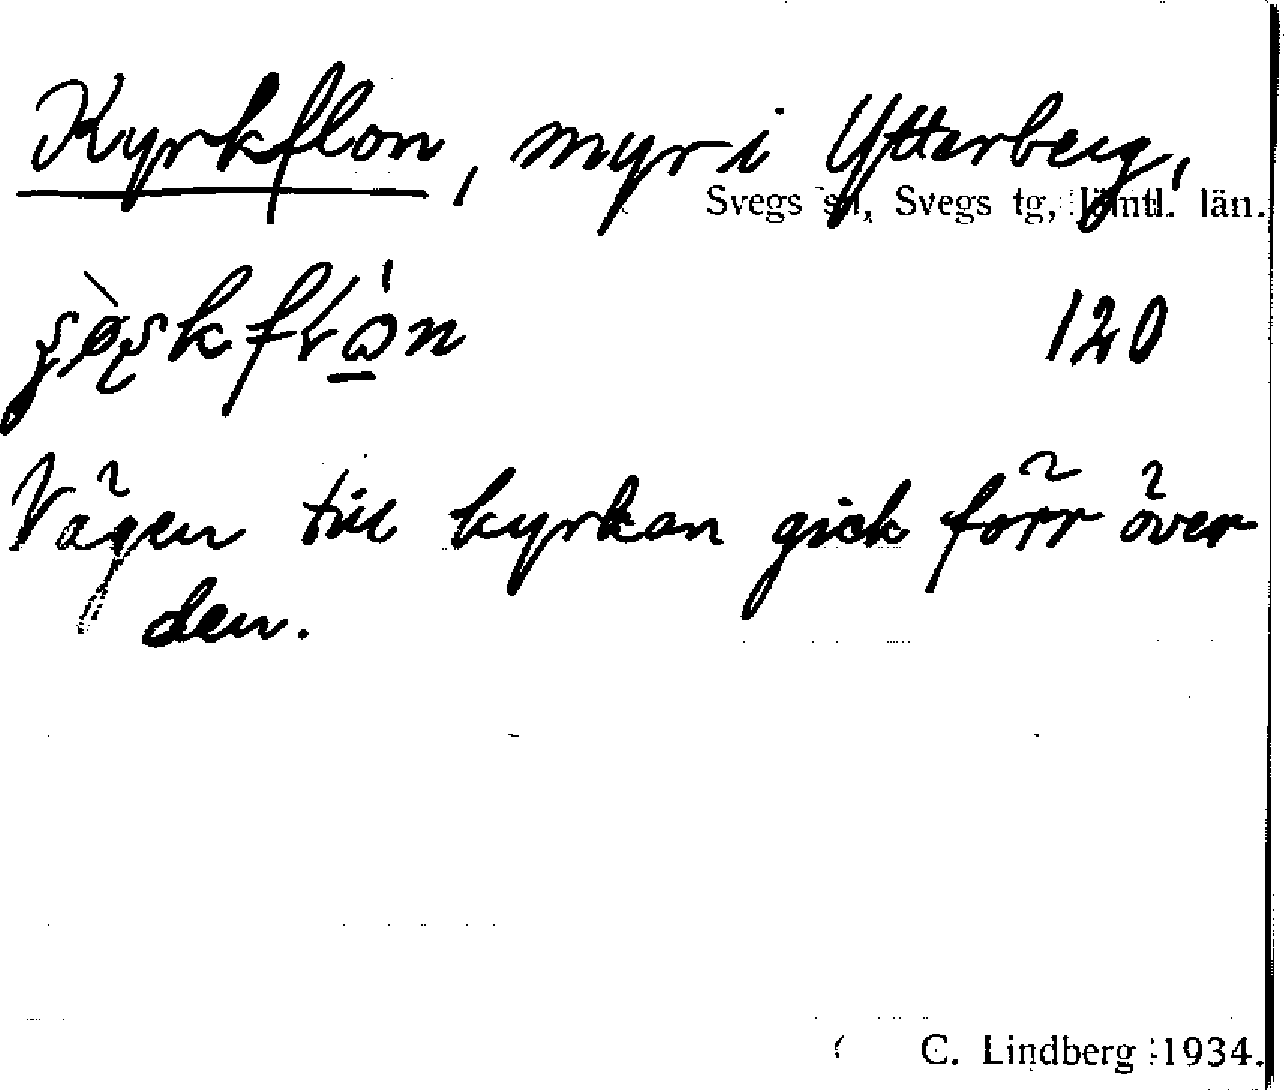 Kyrkflon, myr i Ytterberg,
Svegs sn, Svegs tg, Jämtl. län.
120
Vägen till kyrkan gick förr över
den.
C. Lindberg 1934.